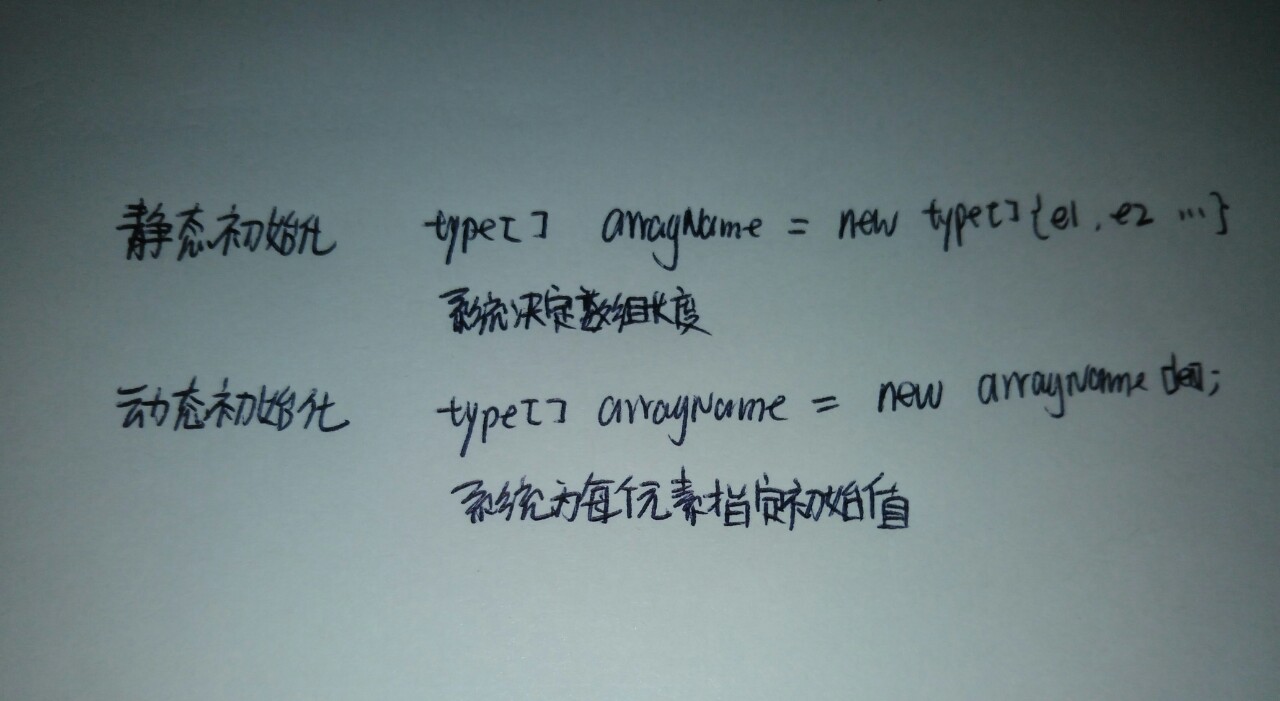 静态初始化 type[] arrayName = new type[]{e1, e2 ...}
系统决定数组长度
动态初始化 type[] arrayName = new arrayName
系统为每个元素指定初始值